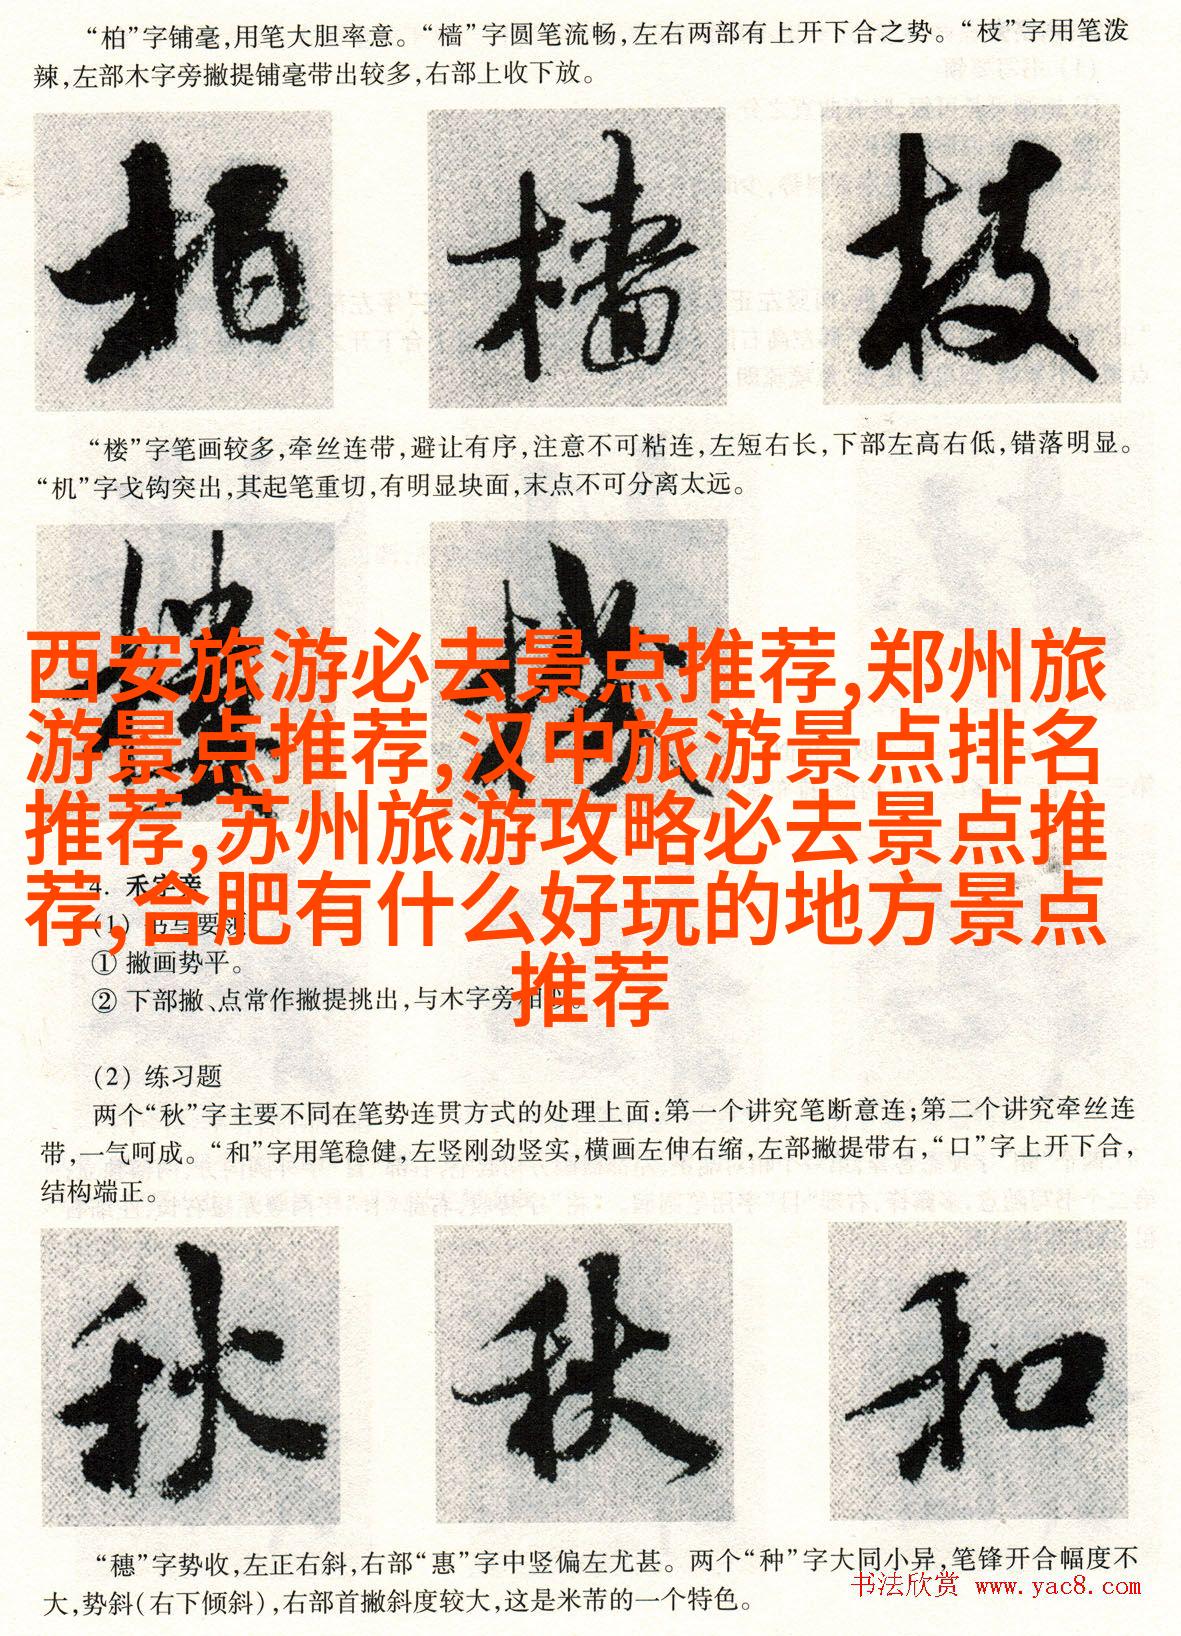 “柏”字铺毫,用笔大胆率意。“樯”字圆笔流畅,左右两部有上开下合之势。“枝”字用笔泼
辣,左部木字旁撇提铺毫带出较多,右部上收下放。
柏 樯 枝
“楼”字笔画较多,牵丝连带,避让有序,注意不可粘连,左短右长,下部左高右低,错落明显。
“机”字戈钩突出,其起笔重切,有明显块面,末点不可分离太远。
西安旅游必去景点推荐,郑州旅
游景点推荐,汉中旅游景点排名
推荐,苏州旅游攻略必去景点推
荐,合肥有什么好玩的地方景点
推荐
4. 禾字旁
(1) 书写要领
① 撇画势平。
② 下部撇、点常作撇提挑出,与木字旁相
(2) 练习题
两个“秋”字主要不同在笔势连贯方式的处理上面:第一个讲究笔断意连;第二个讲究牵丝连
带,一气呵成。“和”字用笔稳健,左竖刚劲竖实,横画左伸右缩,左部撇提带右,“口”字上开下合,
结构端正。
秋 秋 和
“穗”字势收,左正右斜,右部“惠”字中竖偏左尤甚。两个“种”字大同小异,笔锋开合幅度不
大,势斜(右下倾斜),右部首撇斜度较大,这是米芾的一个特色。
书法欣赏 www.yac8.com